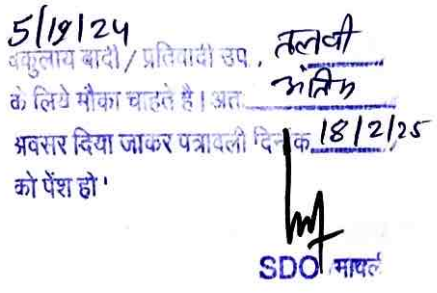 5/19/24
वकुलाय वादी / प्रतिवादी उप. तलवी
के लिये मौका चाहते है। अत अंतिम
अवसर दिया जाकर पत्रावली दिनांक 18/2/25
को पेंश हो '
SDO मावल